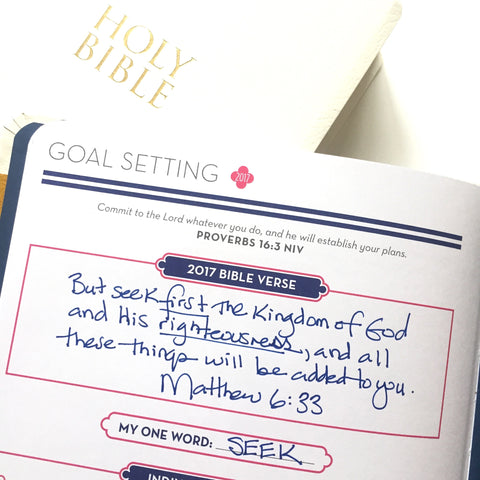 HOLY
BIBLE
GOAL SETTING 2017
Commit to the Lord whatever you do, and he will establish your plans.
PROVERBS 16:3 NIV
2017 BIBLE VERSE
But seek first the Kingdom of God
and His righteousness, and all
these things will be added to you.
Matthew 6:33
MY ONE WORD: SEEK